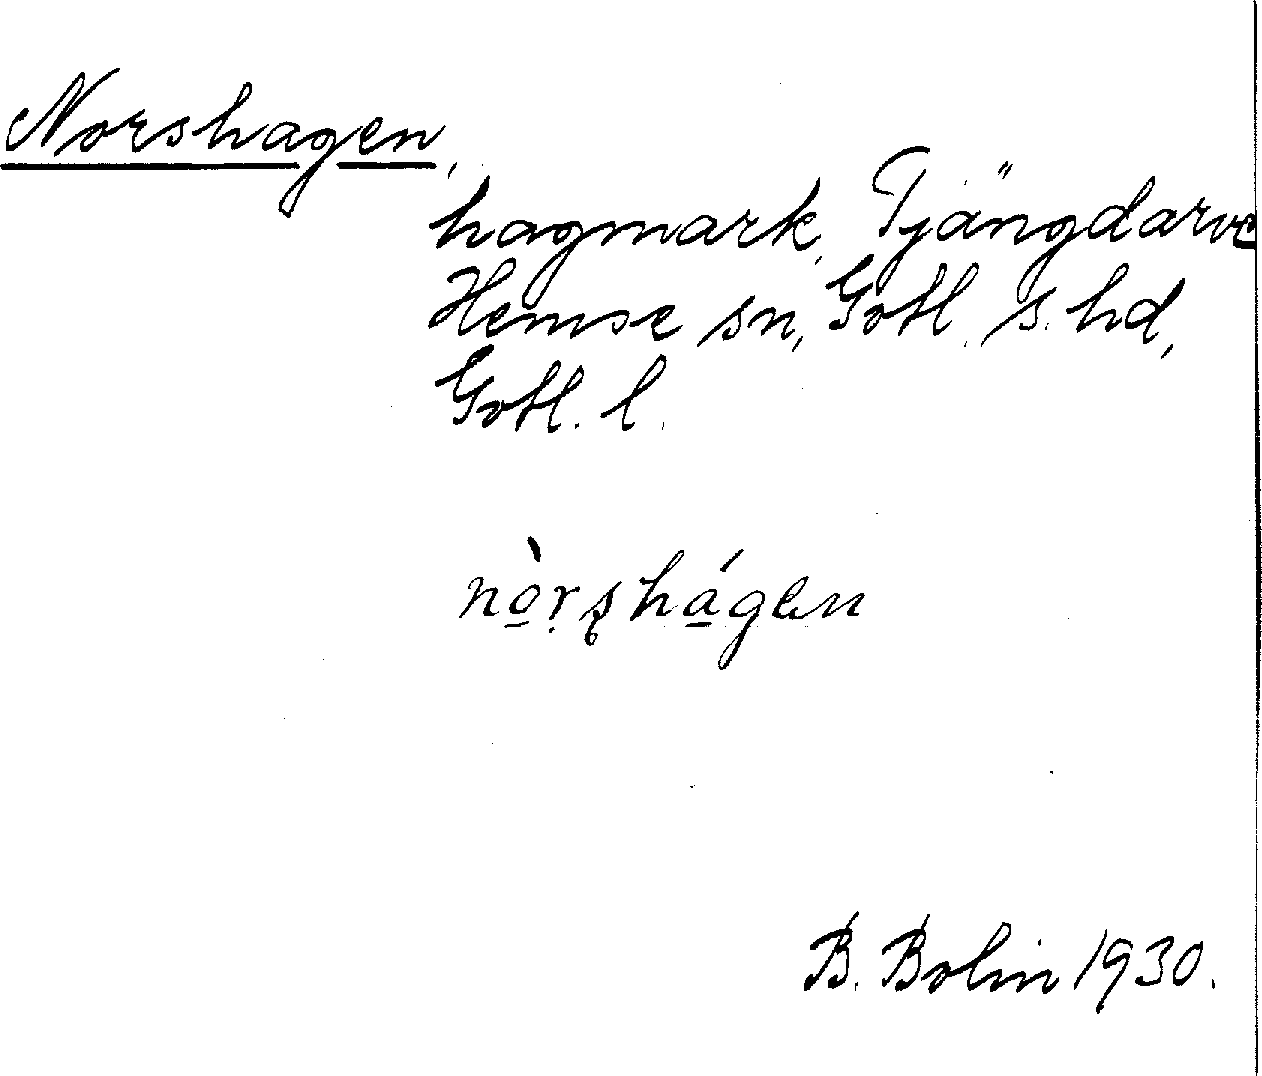 Norshagen,
hagmark, Tjängdarve
Hemse sn, Gotl. s. hd,
Gotl. l.
nò̠ṛşhá̠gen
B. Bolin 1930.